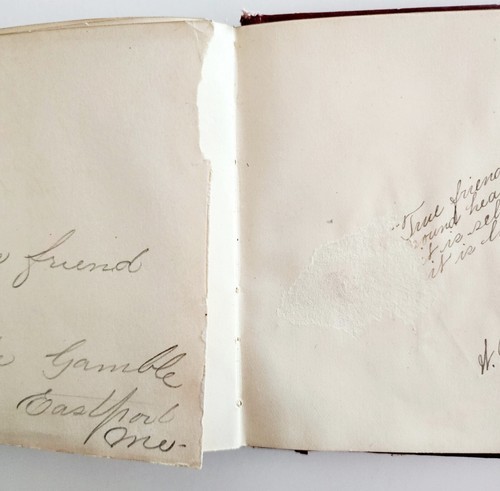 friend
Gamble
Eastport
Me-
"True friend
sound hea
it is
it is